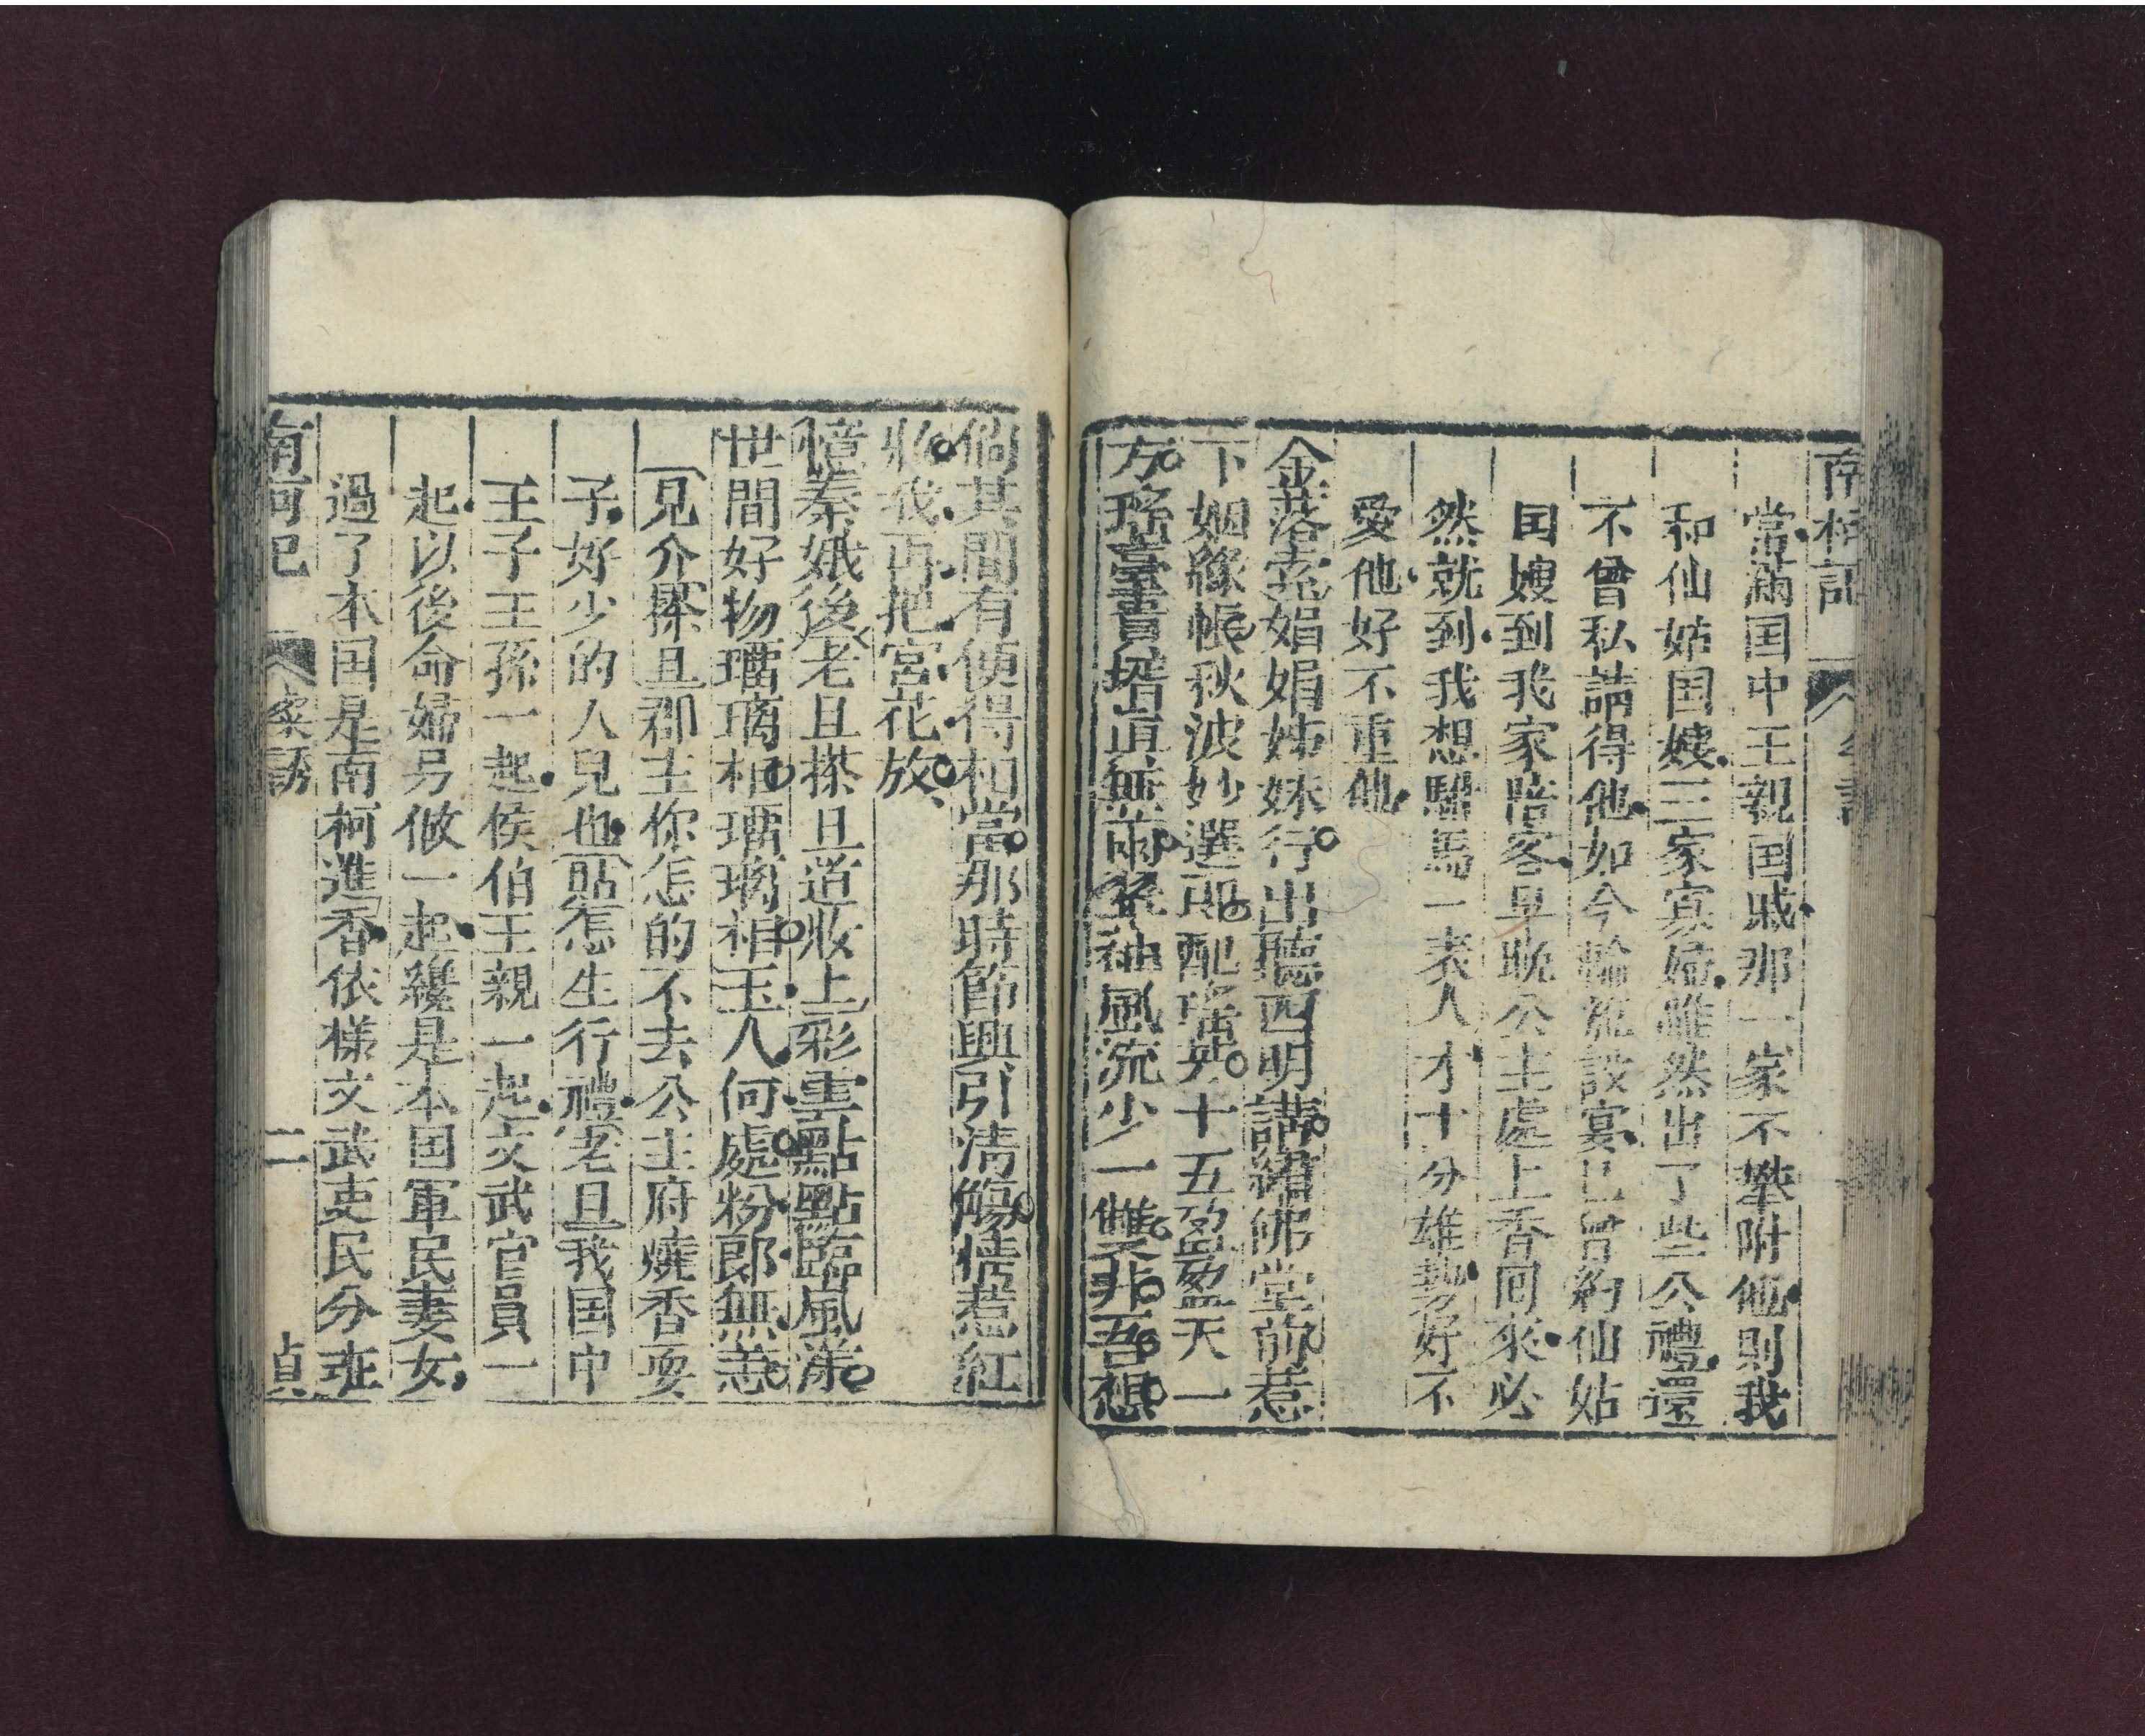 南柯記
常滿国中王親国戚那一家不攀附他則我
和仙姑国嫂三家寡婦雖然出了些公禮還
不曾私請得他如今輪流設宴已曾約仙姑
国嫂到我家陪客早晚公主處上香回來必
然就到我想駙馬一表人才十分雄勢好不
愛他好不重他
金落索娟娟姊妹行出聽四明講綰佛堂前惹
下姻緣帳秋波妙選郎配瑤芳十五盈盈天一
方瑤臺貴壻直無兩袖風流少一雙非吾想
倘其間有便得相當那時節興引淸觴情惹紅
粧我再把宮花放
憶秦娥後老旦搽旦道妝上彩雲點點臨風漾
世間好物璢璃相璢璃相玉人何處粉郎無恙
見介搽旦郡主你怎的不去公主府燒香耍
子好少的人兒也貼怎生行禮老旦我国中
王子王孫一起侯伯王親一起文武官員一
起以後命婦另做一起纔是本国軍民妻女
過了本国是南柯進香依樣文武吏民分班
南柯記 粲誘 二 貞